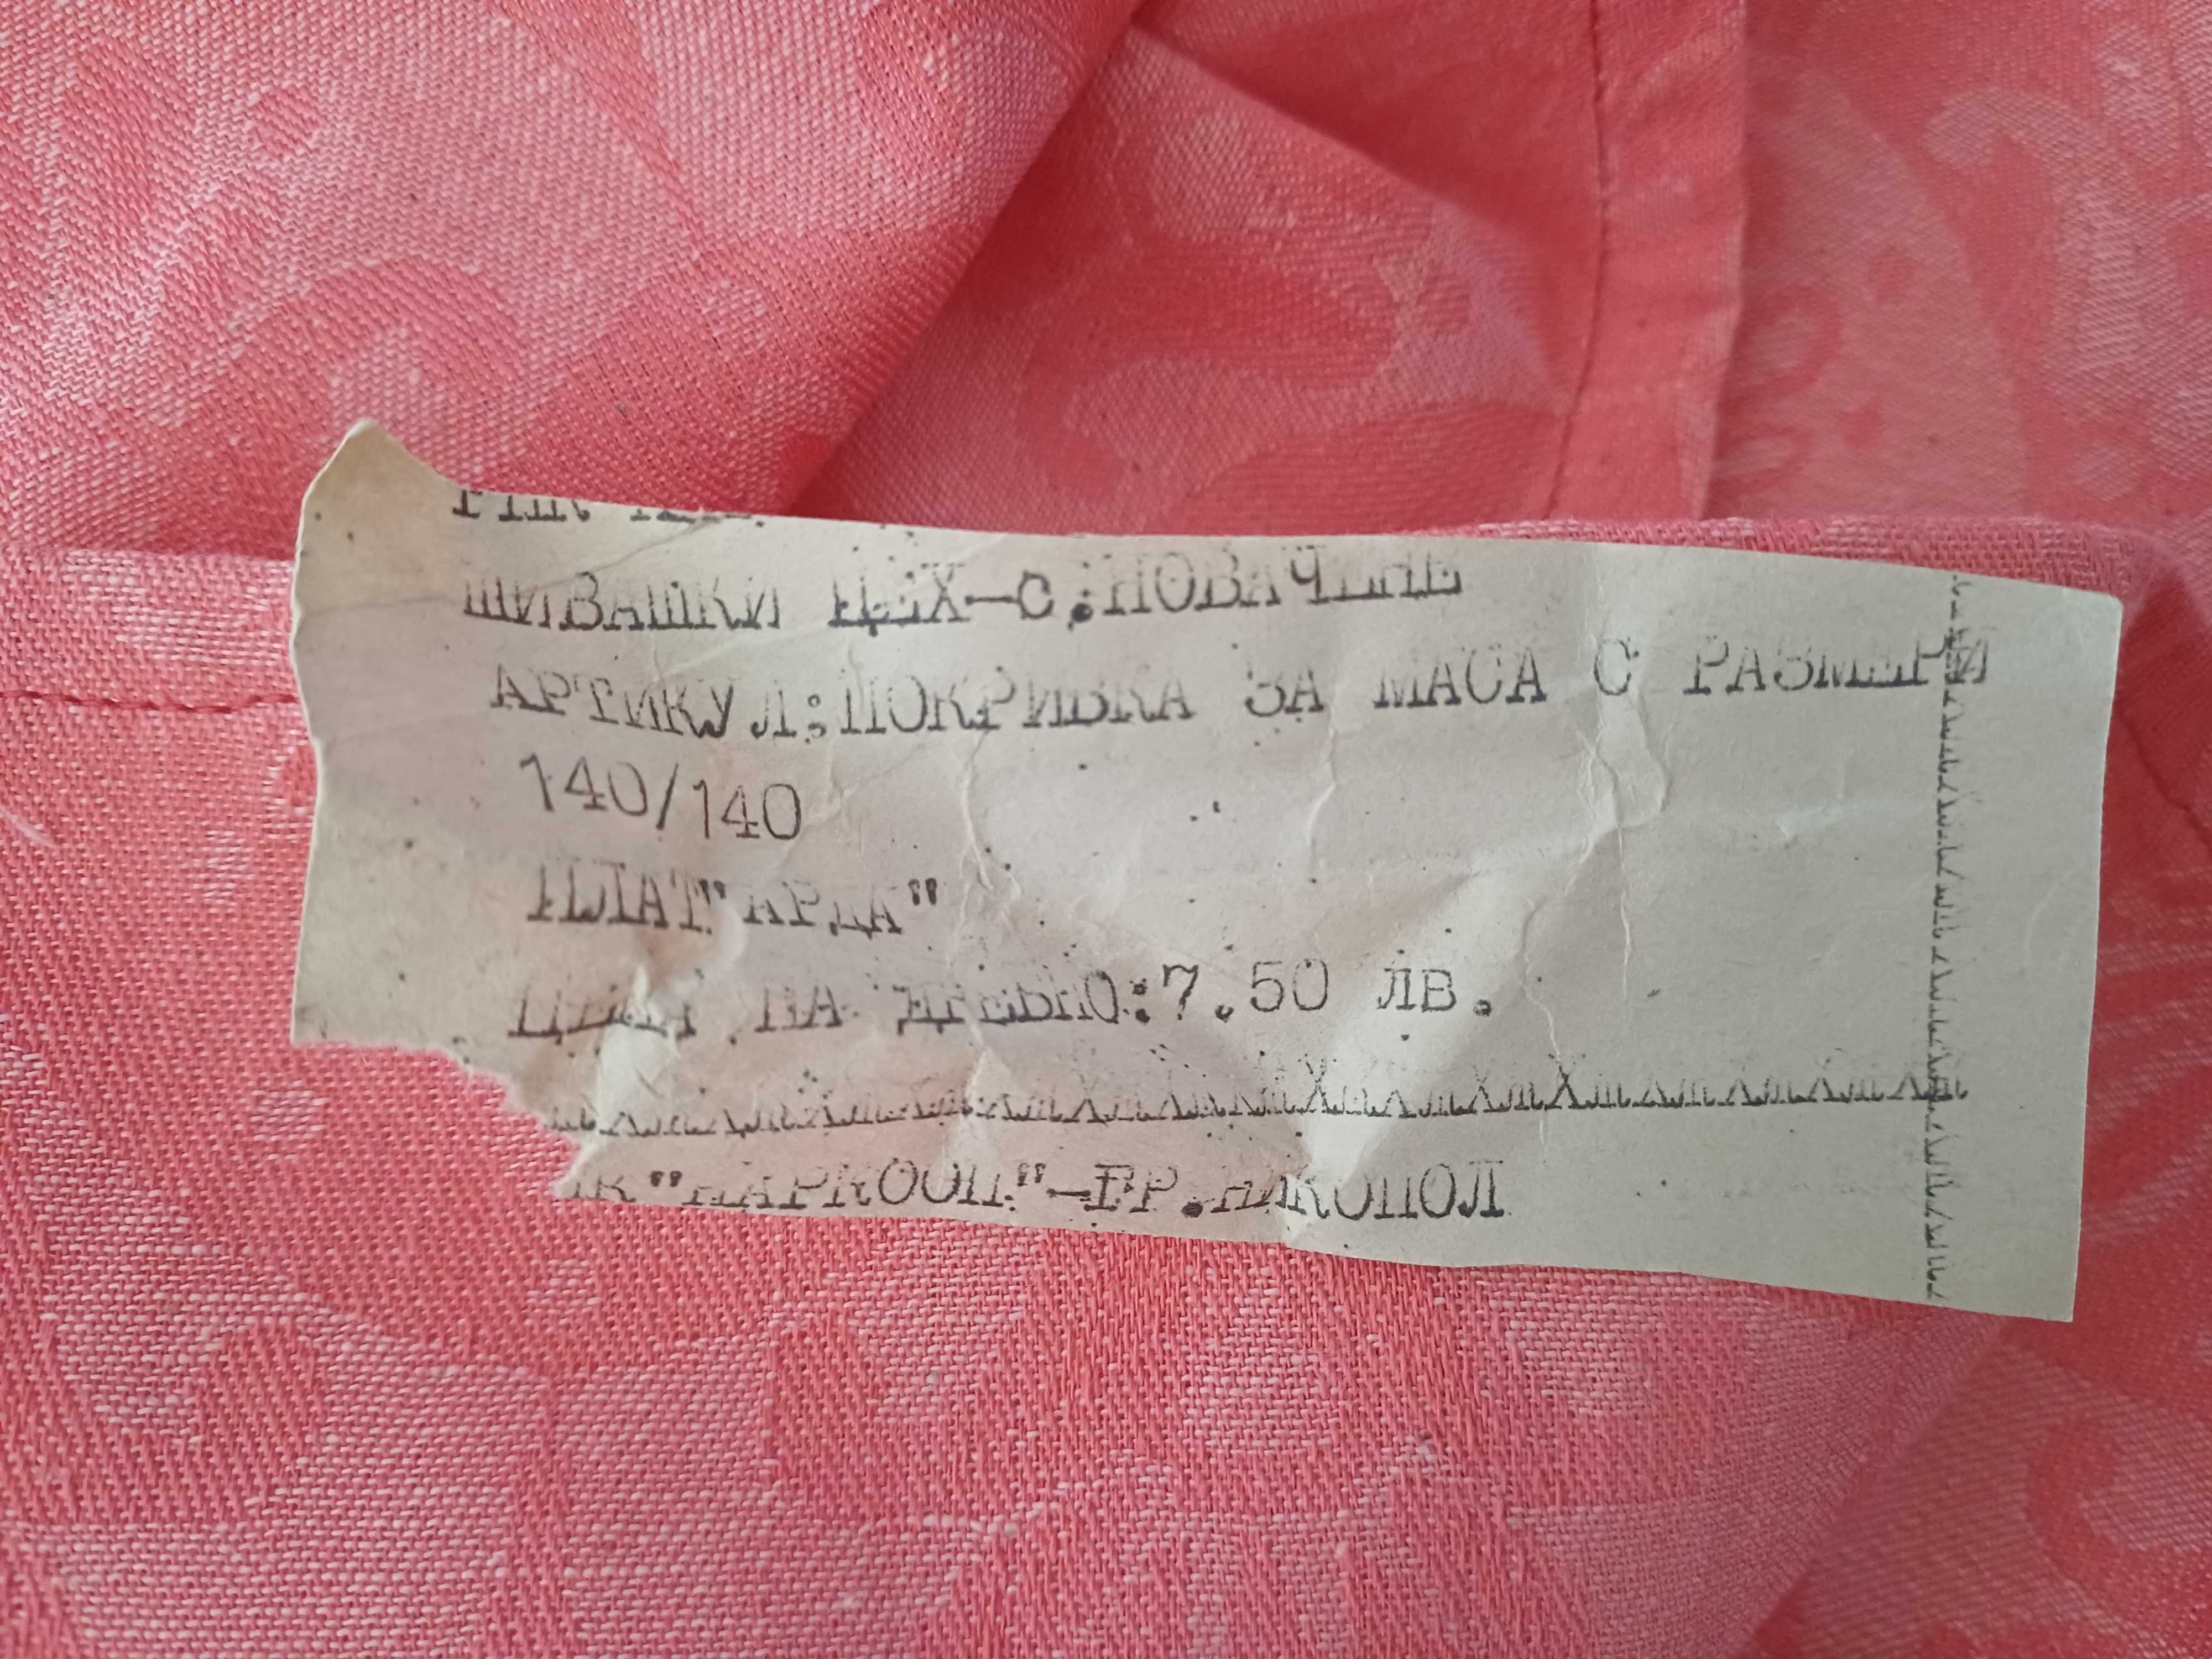 ШИВАШКИ ЦЕХ-С.НОВАЧЕНЕ
АРТИКУЛ:ПОКРИВКА ЗА МАСА С РАЗМЕРИ
140/140
ПЛАТ"АРДА"
ЦЕНА НА ДРЕБНО:7.50 лв.
"НАРКООП"-ГР.НИКОПОЛ